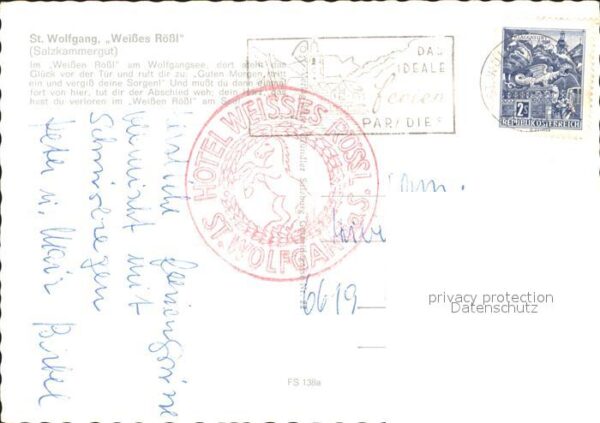 St. Wolfgang, „Weißes Rößl“
(Salzkammergut)
Im „Weißen Rößl“ am Wolfgangsee, dort steht das
Glück vor der Tür und ruft dir zu: „Guten Morgen, tritt
ein und vergiß deine Sorgen!“ Und mußt du dann einmal
fort von hier, tut dir der Abschied so weh, dein Herz,
hast du verloren im „Weißen Rößl“ am See
DAS
IDEALE
ferien
PARADIES
2 S
REPUBLIK ÖSTERREICH
HOTEL WEISSES RÖSSL
ST. WOLFGANG a.S.
Herzliche Feriengrüsse
vermischt mit
Schnürlregen
Peter u.
Fam.
hier
6619
privacy protection
Datenschutz
FS 138a